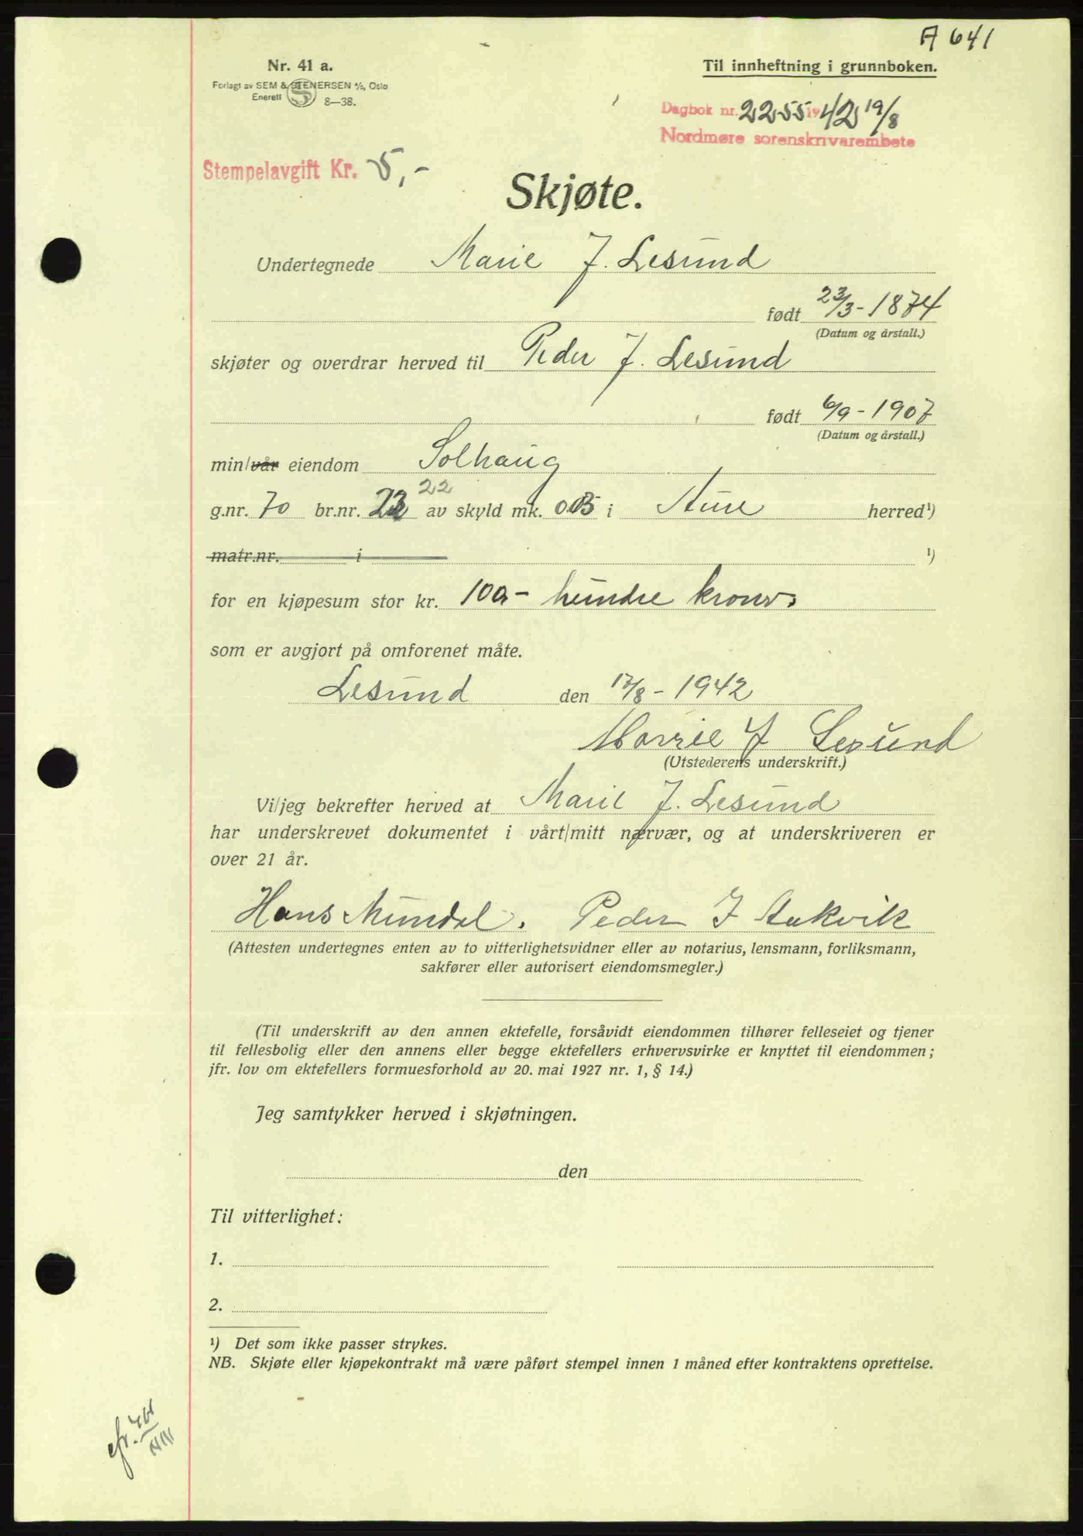 A 641
Nr. 41 a.
Forlagt av SEM & STENERSEN A/S, Oslo
Enerett 8—38.
Til innheftning i grunnboken.
Dagbok nr. 2255 1942 19/8
Nordmøre sorenskrivarembete
Stempelavgift Kr. 5,-
Skjøte.
Undertegnede Marie J. Lesund
født 23/3-1874
(Datum og årstall.)
skjøter og overdrar herved til Peder J. Lesund
født 6/9-1907
(Datum og årstall.)
min/vår eiendom Solhaug
22
g.nr. 70 br.nr. 23 av skyld mk. 0.05 i Aure herred¹)
matr.nr. i ¹)
for en kjøpesum stor kr. 100,- hundre kroner
som er avgjort på omforenet måte.
Lesund den 17/8-1942
Marie J Lesund
(Utstederens underskrift.)
Vi/jeg bekrefter herved at Marie J. Lesund
har underskrevet dokumentet i vårt/mitt nærvær, og at underskriveren er
over 21 år.
Hans Mundal. Peder J Aakvik
(Attesten undertegnes enten av to vitterlighetsvidner eller av notarius, lensmann, forliksmann,
sakfører eller autorisert eiendomsmegler.)
(Til underskrift av den annen ektefelle, forsåvidt eiendommen tilhører felleseiet og tjener
til fellesbolig eller den annens eller begge ektefellers erhvervsvirke er knyttet til eiendommen;
jfr. lov om ektefellers formuesforhold av 20. mai 1927 nr. 1, § 14.)
Jeg samtykker herved i skjøtningen.
den
Til vitterlighet:
1.
2.
¹) Det som ikke passer strykes.
NB. Skjøte eller kjøpekontrakt må være påført stempel innen 1 måned efter kontraktens oprettelse.